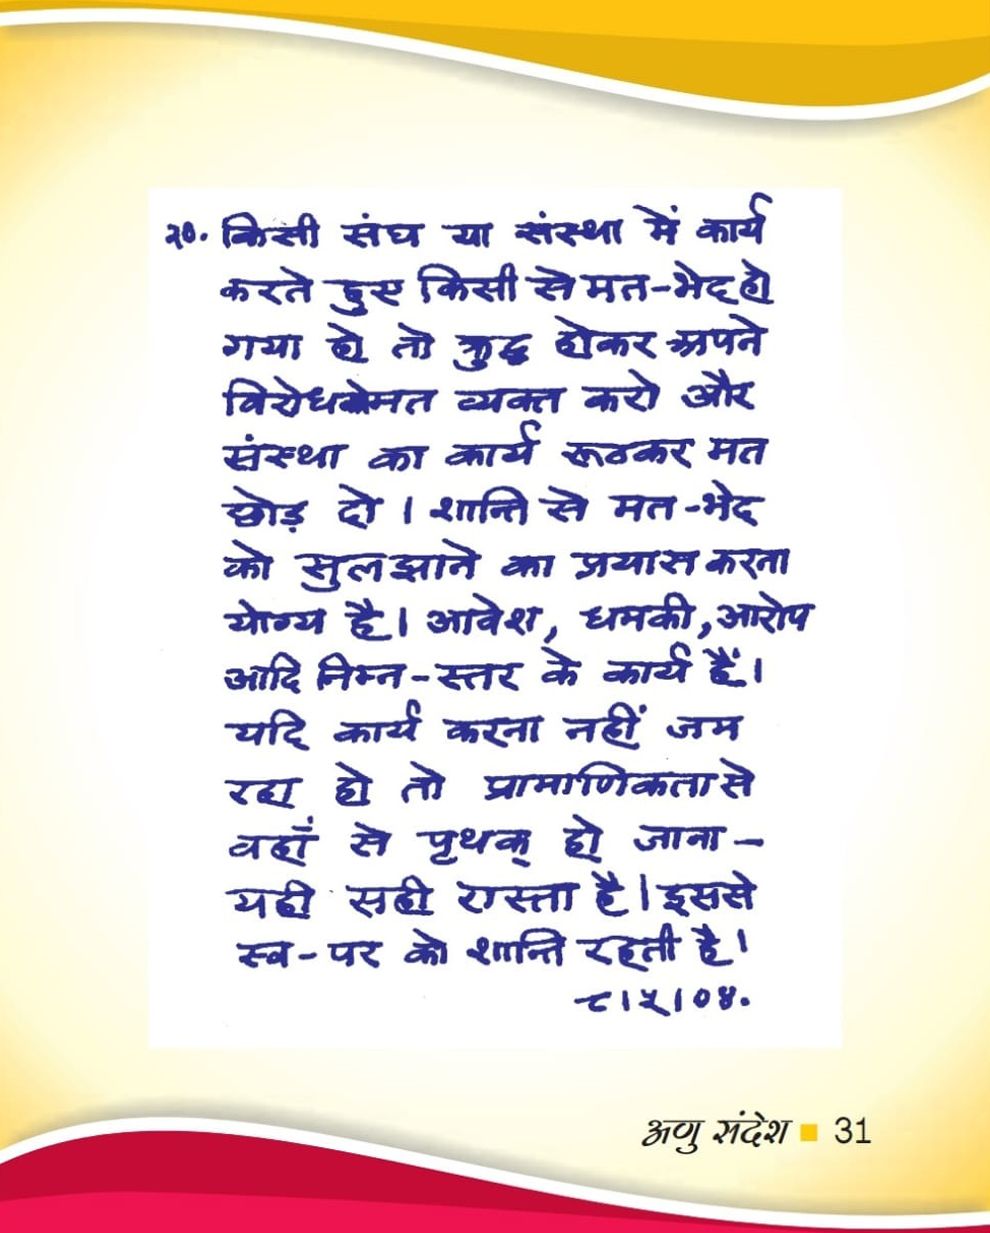 २०. किसी संघ या संस्था में कार्य
करते हुए किसी से मत-भेद हो
गया हो तो क्रुद्ध होकर अपने
विरोध के मत व्यक्त करो और
संस्था का कार्य रूठकर मत
छोड़ दो । शान्ति से मत-भेद
को सुलझाने का प्रयास करना
योग्य है । आवेश, धमकी, आरोप
आदि निम्न-स्तर के कार्य हैं ।
यदि कार्य करना नहीं जम
रहा हो तो प्रामाणिकता से
वहाँ से पृथक् हो जाना –
यही सही रास्ता है । इससे
स्व-पर को शान्ति रहती है ।
८।५।०४.
अणु संदेश 31